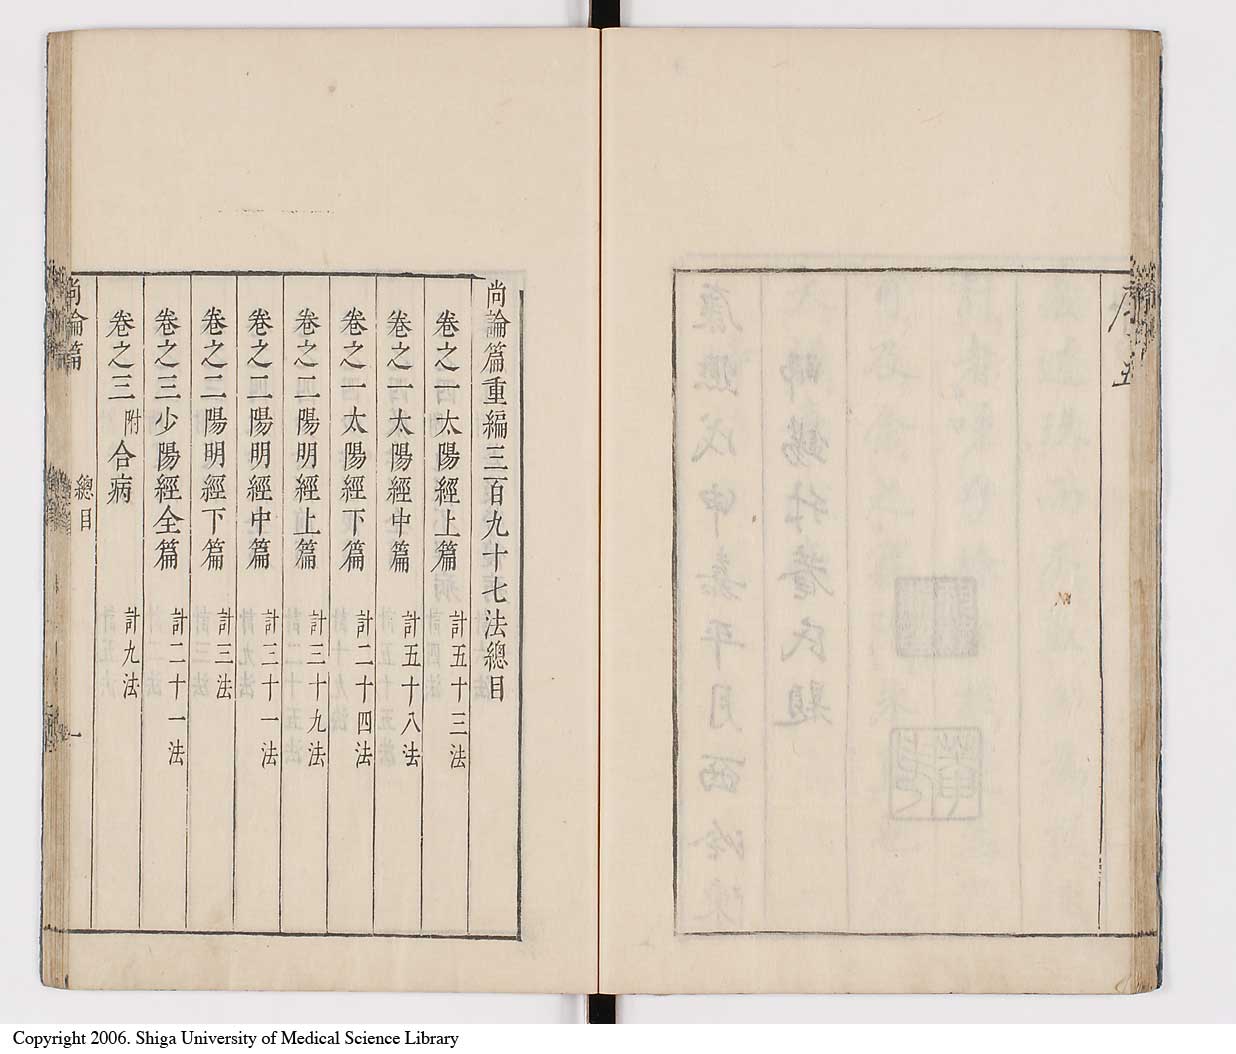 序
五
尚論篇重編三百九十七法總目
卷之一太陽經上篇 計五十三法
卷之一太陽經中篇 計五十八法
卷之一太陽經下篇 計二十四法
卷之二陽明經上篇 計三十九法
卷之二陽明經中篇 計三十一法
卷之二陽明經下篇 計三法
卷之三少陽經全篇 計二十一法
卷之三附合病 計九法
尚論篇 總目 一
Copyright 2006. Shiga University of Medical Science Library